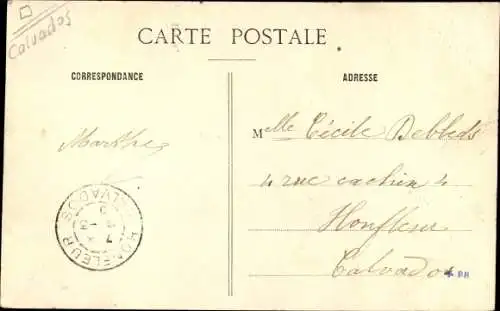 Calvados
CARTE POSTALE
CORRESPONDANCE
ADRESSE
Marthe
Melle Cécile Debleds
4 rue cachin 4
Honfleur
Calvados
HONFLEUR CALVADOS